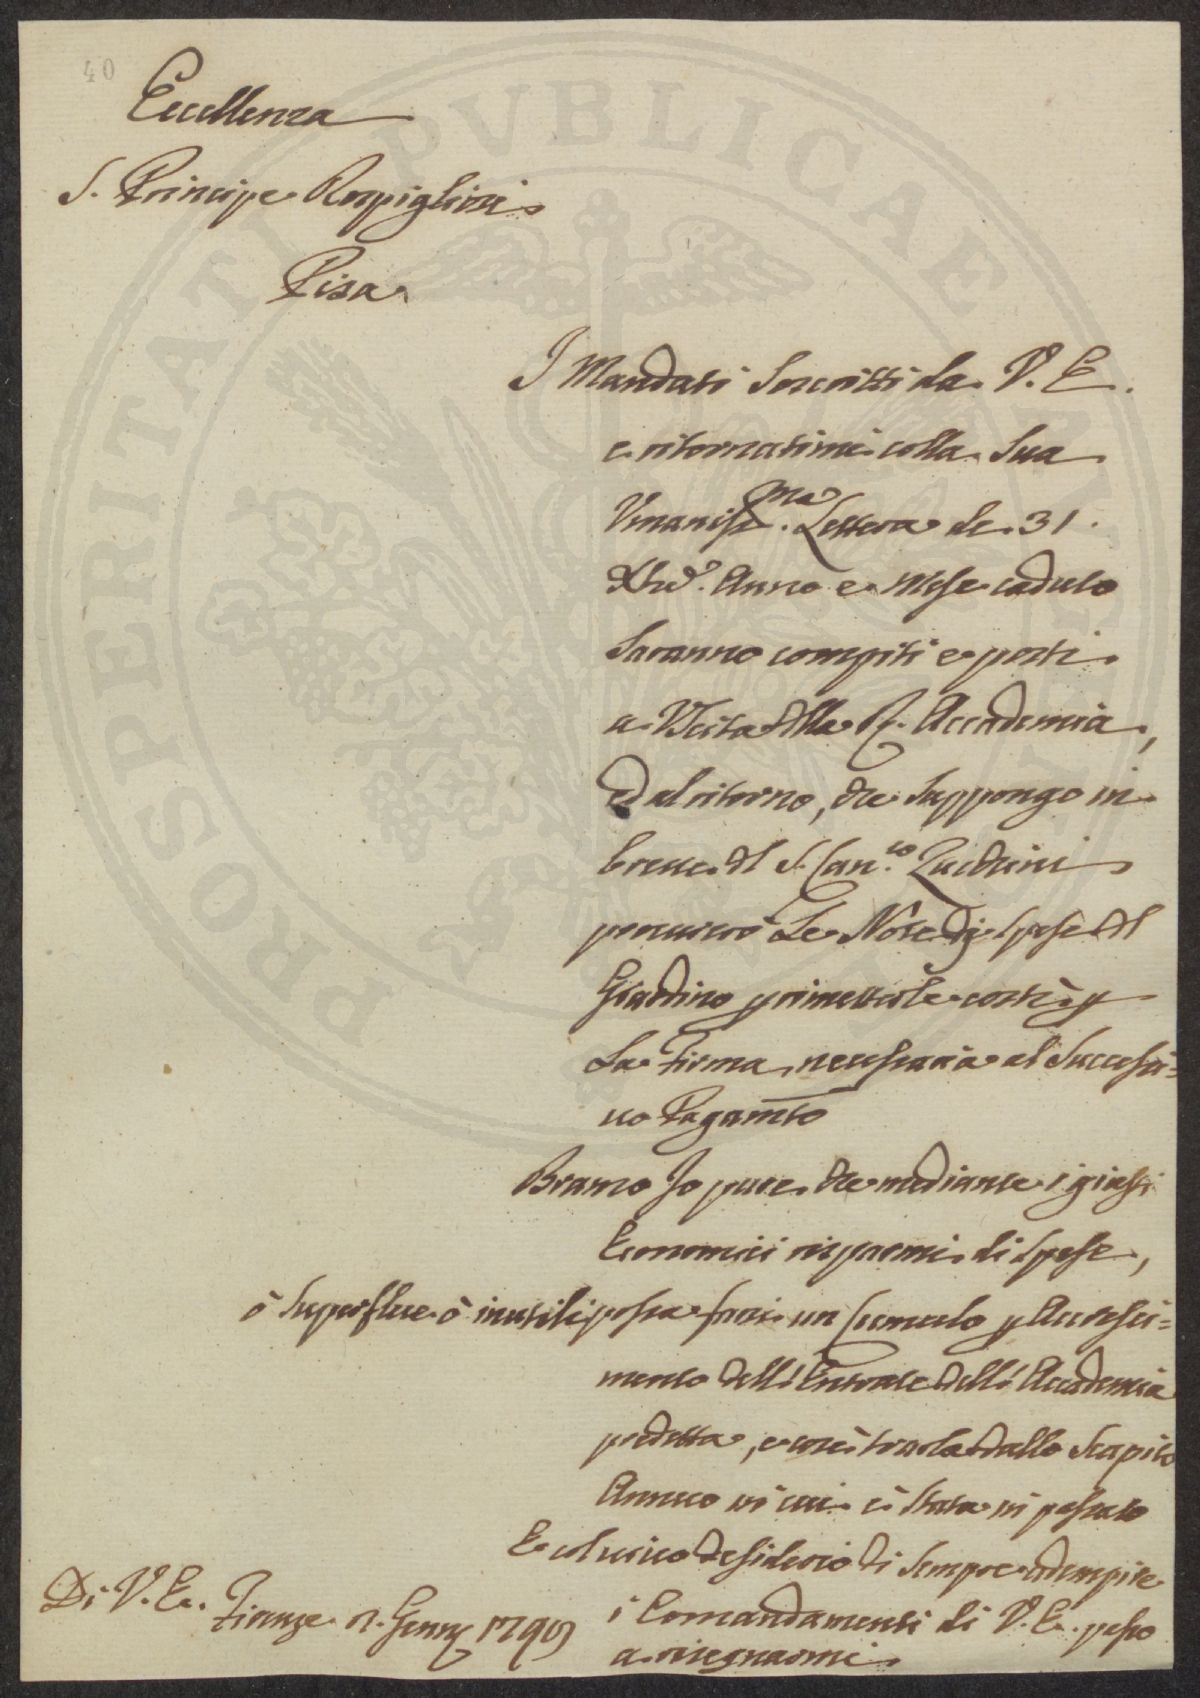 40
Eccellenza
S. Principe Rospigliosi
Pisa
I Mandati Soscritti da V. E.
e ritornatimi colla Sua
Umaniss.ma Lettera de 31.
Xbre. Anno e Mese caduto
Saranno compiti e posti
a Uscita della R. Accademia,
ed al ritorno, che suppongo in
breve del S. Can.co Zucchini
procurerò Le Note di spese del
Giardino p rimetterle costì p
La Firma necessaria al Successi=
vo Pagamto
Bramo Io pure che mediante i giusti
Economici risparmi di spese,
ò superflue ò inutili possa farsi un Cumulo p Accresci=
mento dell'Entrate dell'Accademia
predetta, e così torla dallo Scapito
Annuo in cui è stata in passato
E col vivo desiderio di sempre adempire
i Comandamenti di V. E. passo
a rasegnarmi
Di V. E. Firenze Genn
PROSPERITATI PVBLICAE